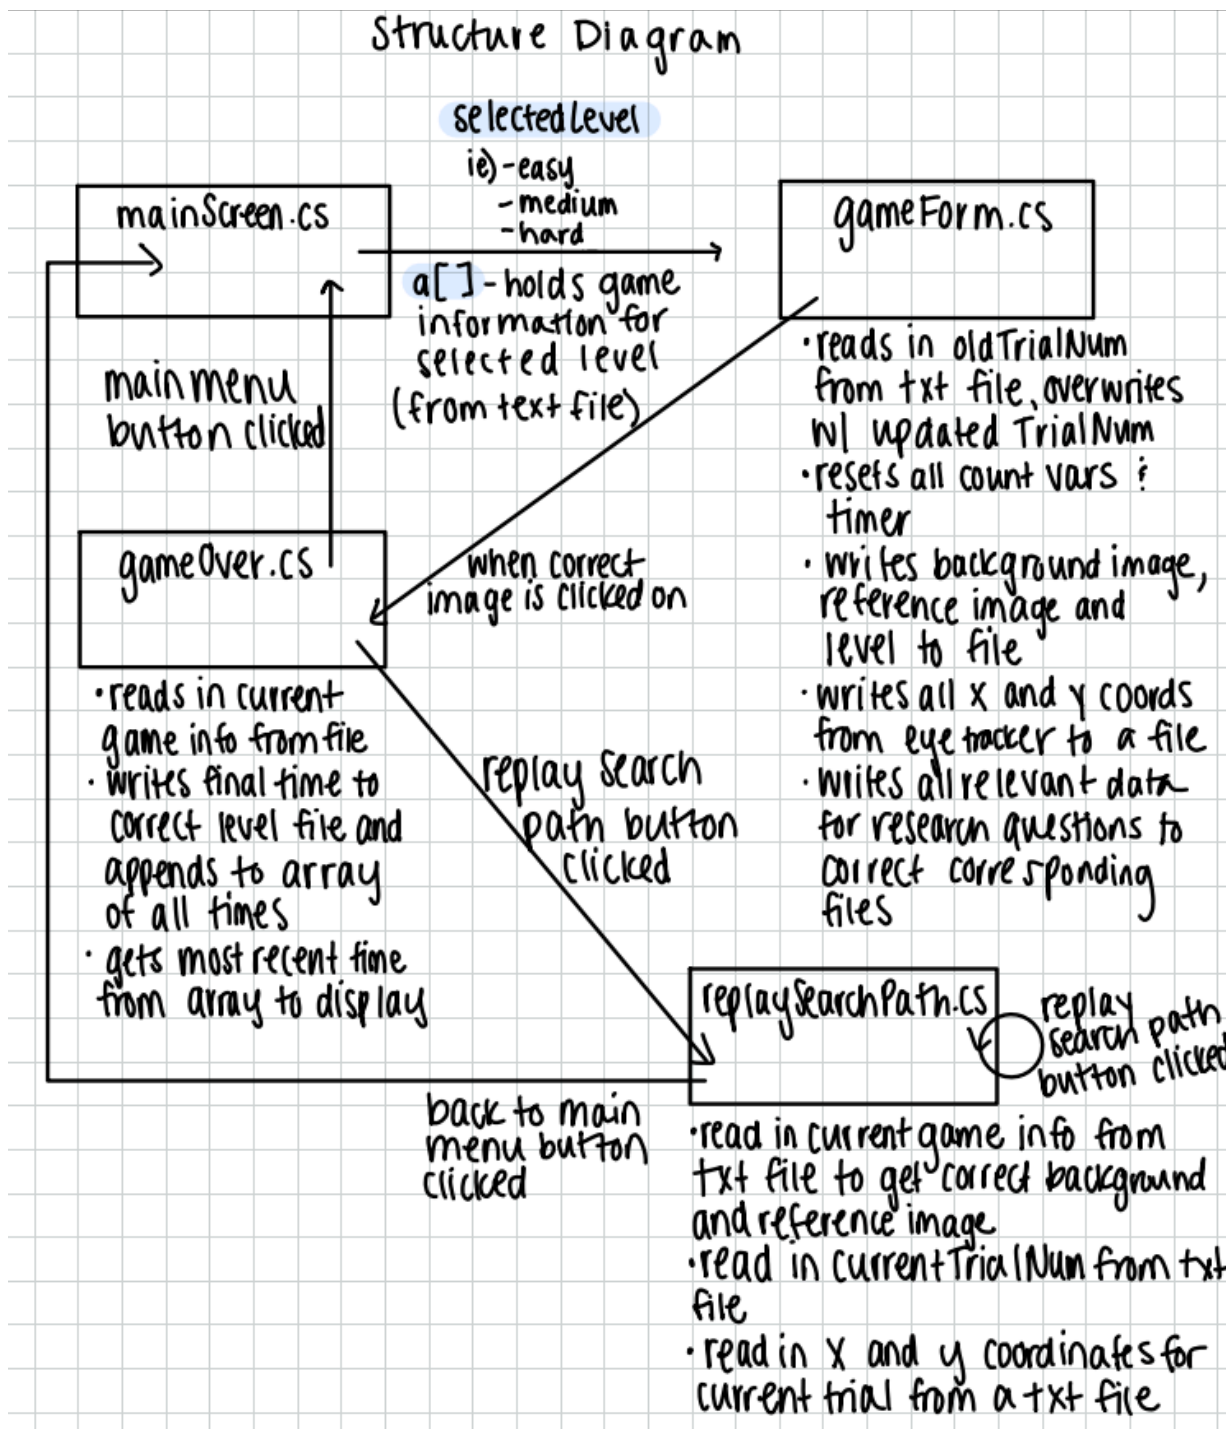 Structure Diagram
selectedLevel
ie) - easy
- medium
- hard
mainScreen.cs
gameForm.cs
a[] - holds game
information for
selected level
(from text file)
main menu
button clicked
• reads in oldTrialNum
from txt file, overwrites
w/ updated TrialNum
• resets all count vars &
timer
• writes background image,
reference image and
level to file
• writes all x and y coords
from eye tracker to a file
• writes all relevant data
for research questions to
correct corresponding
files
gameOver.cs
when correct
image is clicked on
• reads in current
game info from file
• writes final time to
correct level file and
appends to array
of all times
• gets most recent time
from array to display
replay search
path button
clicked
replaySearchPath.cs
replay
search path
button clicked
back to main
menu button
clicked
• read in current game info from
txt file to get correct background
and reference image
• read in currentTrialNum from txt
file
• read in x and y coordinates for
current trial from a txt file